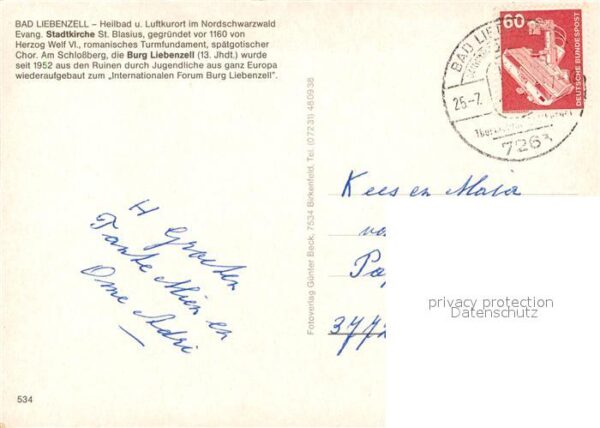 BAD LIEBENZELL – Heilbad u. Luftkurort im Nordschwarzwald
Evang. Stadtkirche St. Blasius, gegründet vor 1160 von
Herzog Welf VI., romanisches Turmfundament, spätgotischer
Chor. Am Schloßberg, die Burg Liebenzell (13. Jhdt.) wurde
seit 1952 aus den Ruinen durch Jugendliche aus ganz Europa
wiederaufgebaut zum „Internationalen Forum Burg Liebenzell".
BAD LIE
25.-7.
7263
60
DEUTSCHE BUNDESPOST
Fotoverlag Günter Beck, 7534 Birkenfeld, Tel. (07231) 480938
Kees en Maia
va
Pa
3772
H Groeten
Tante Mien en
Ome Adri
privacy protection
Datenschutz
534